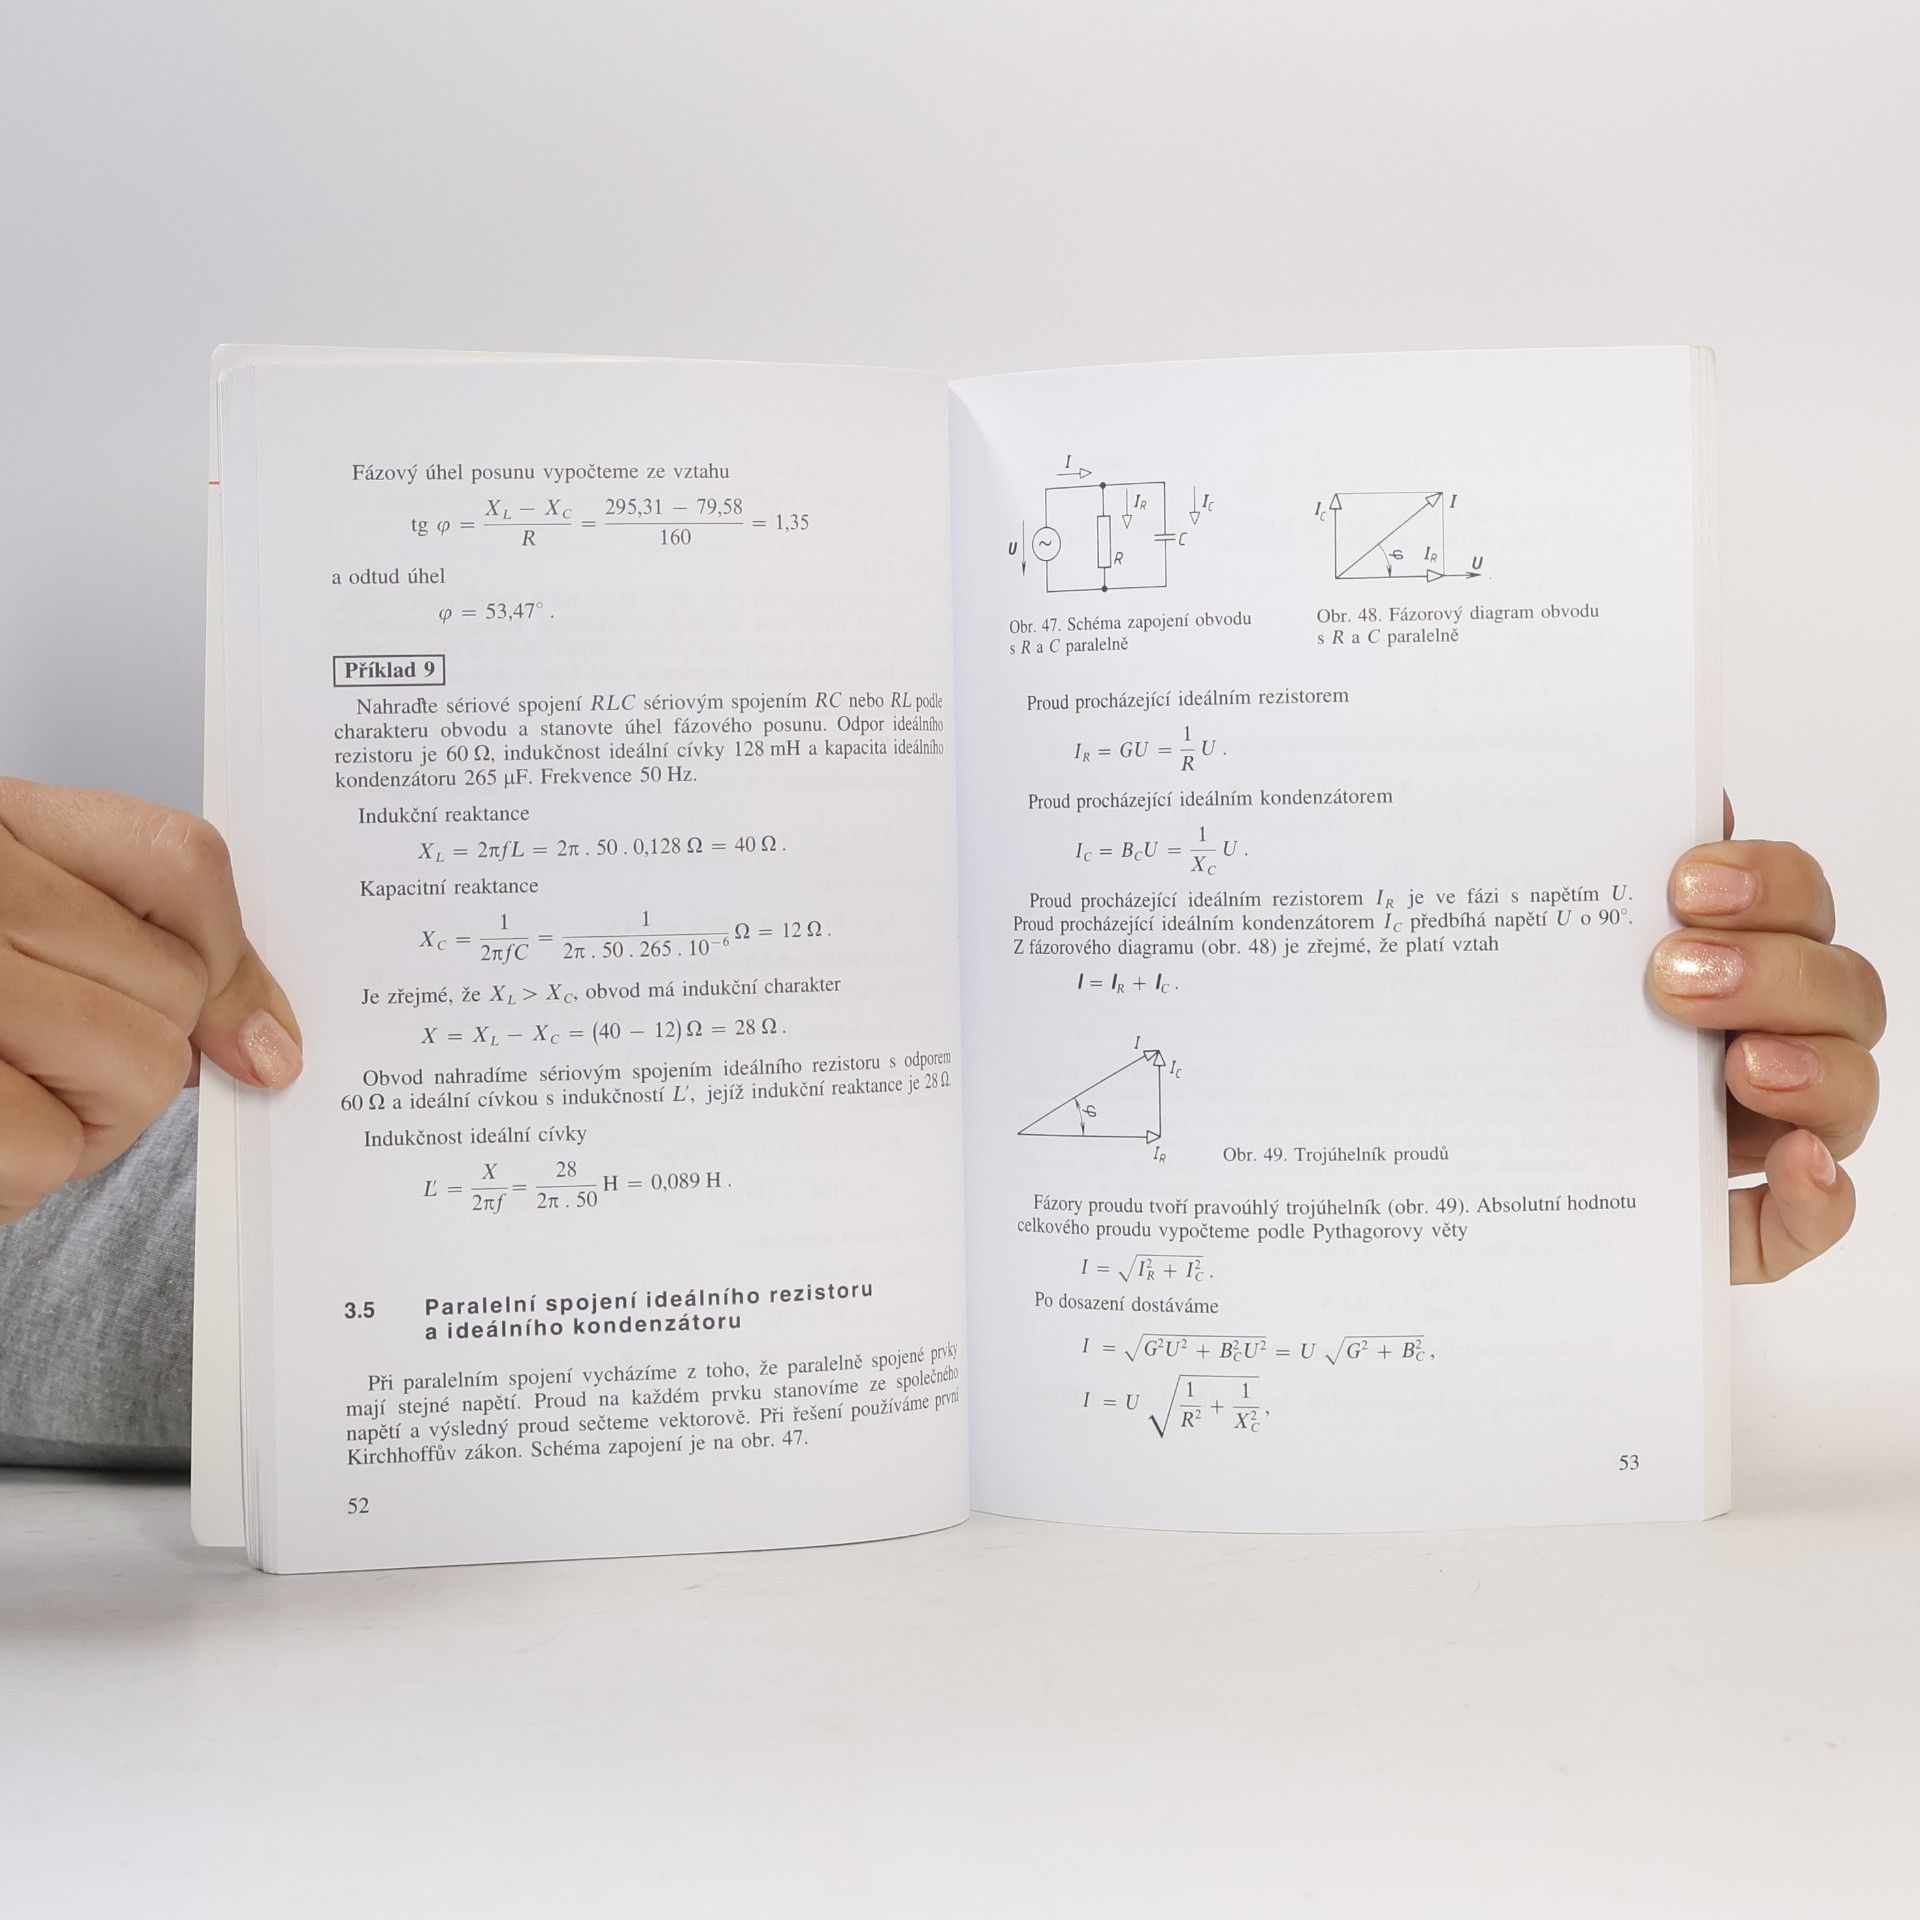 Fázový úhel posunu vypočteme ze vztahu
tg φ = (X_L − X_C)/R = (295,31 − 79,58)/160 = 1,35
a odtud úhel
φ = 53,47° .
Příklad 9
Nahraďte sériové spojení RLC sériovým spojením RC nebo RL podle
charakteru obvodu a stanovte úhel fázového posunu. Odpor ideálního
rezistoru je 60 Ω, indukčnost ideální cívky 128 mH a kapacita ideálního
kondenzátoru 265 μF. Frekvence 50 Hz.
Indukční reaktance
X_L = 2πfL = 2π . 50 . 0,128 Ω = 40 Ω .
Kapacitní reaktance
X_C = 1/(2πfC) = 1/(2π . 50 . 265 . 10⁻⁶) Ω = 12 Ω .
Je zřejmé, že X_L > X_C, obvod má indukční charakter
X = X_L − X_C = (40 − 12) Ω = 28 Ω .
Obvod nahradíme sériovým spojením ideálního rezistoru s odporem
60 Ω a ideální cívkou s indukčností L′, jejíž indukční reaktance je 28 Ω
Indukčnost ideální cívky
L′ = X/(2πf) = 28/(2π . 50) H = 0,089 H .
3.5 Paralelní spojení ideálního rezistoru
a ideálního kondenzátoru
Při paralelním spojení vycházíme z toho, že paralelně spojené prvky
mají stejné napětí. Proud na každém prvku stanovíme ze společného
napětí a výsledný proud sečteme vektorově. Při řešení používáme první
Kirchhoffův zákon. Schéma zapojení je na obr. 47.
52
I
I_R
I_C
U
~
R
C
Obr. 47. Schéma zapojení obvodu
s R a C paralelně
I_C
I
φ
I_R
U
Obr. 48. Fázorový diagram obvodu
s R a C paralelně
Proud procházející ideálním rezistorem
I_R = GU = (1/R) U .
Proud procházející ideálním kondenzátorem
I_C = B_C U = (1/X_C) U .
Proud procházející ideálním rezistorem I_R je ve fázi s napětím U.
Proud procházející ideálním kondenzátorem I_C předbíhá napětí U o 90°.
Z fázorového diagramu (obr. 48) je zřejmé, že platí vztah
I = I_R + I_C .
I
I_C
φ
I_R
Obr. 49. Trojúhelník proudů
Fázory proudu tvoří pravoúhlý trojúhelník (obr. 49). Absolutní hodnotu
celkového proudu vypočteme podle Pythagorovy věty
I = √(I_R² + I_C²) .
Po dosazení dostáváme
I = √(G²U² + B_C²U²) = U √(G² + B_C²) ,
I = U √(1/R² + 1/X_C²) ,
53